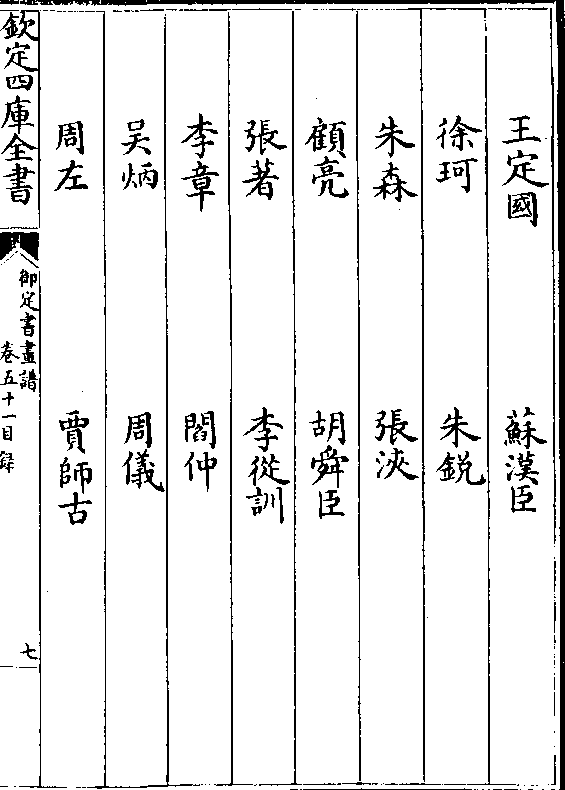 王定國　蘇漢臣
徐珂　朱銳
朱森　張浹
顧亮　胡舜臣
張著　李從訓
李章　閻仲
吳炳　周儀
周左　賈師古
欽定四庫全書
御定書畫譜
卷五十一目錄
七